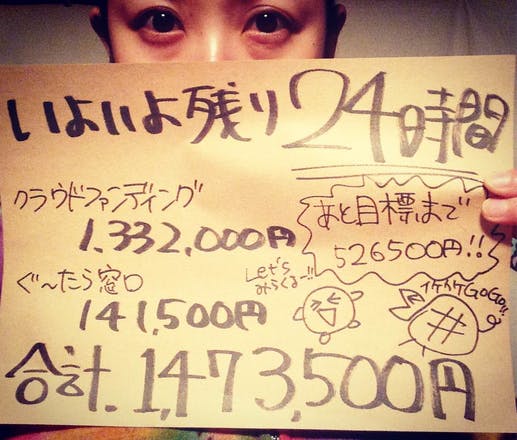 いよいよ残り24時間
クラウドファンディング
1.332,000円
あと目標まで
526500円!!
ぐ〜たら窓口
141,500円
Let's
みらくるー!!
イケイケGoGo!!
合計.1,473,500円